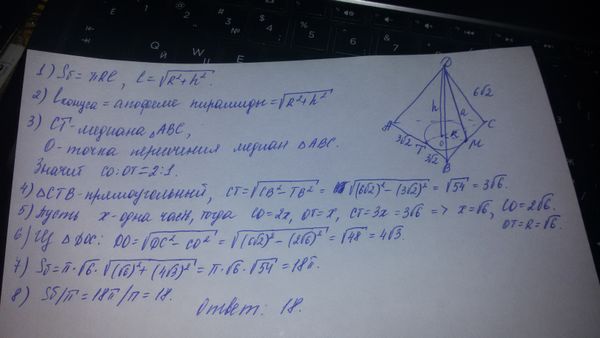 1) Sб = πRl, l = √(R²+h²).
2) lконуса = апофема пирамиды = √(R²+h²)
3) CT - медиана △ABC,
O - точка пересечения медиан △ABC.
Значит CO:OT = 2:1.
4) △CTB - прямоугольный, CT = √(CB² - TB²) = √((6√2)² - (3√2)²) = √54 = 3√6.
5) Пусть x - одна часть, тогда CO = 2x, OT = x, CT = 3x = 3√6 => x = √6, CO = 2√6.
OT = R = √6.
6) Из △DOC: DO = √(DC² - CO²) = √((6√2)² - (2√6)²) = √48 = 4√3.
7) Sб = π·√6·√((√6)² + (4√3)²) = π·√6·√54 = 18π.
8) Sб/π = 18π/π = 18.
Ответ: 18.
D
6√2
h
a
A
C
O
R
M
3√2
T
3√2
B